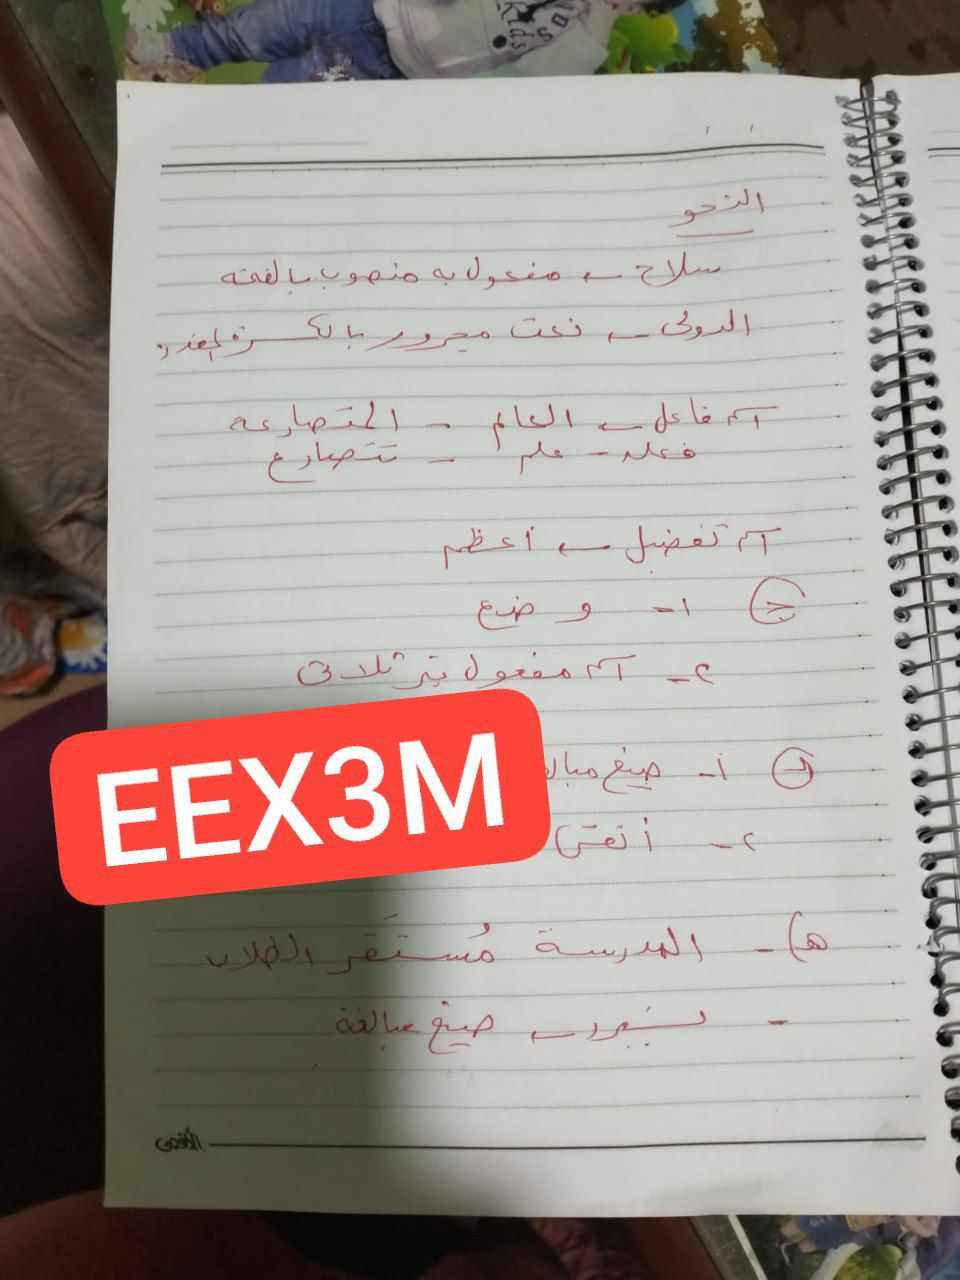 النحو
سلاح ← مفعول به منصوب بالفتحة
الدولى ← نعت مجرور بالكسرة المقدرة
اسم فاعل ← العالم - المتصارعة
فعله - علم - تتصارع
اسم تفضيل ← أعظم
ج ١- وضع
٢- اسم مفعول غير ثلاثى
د ١- صيغ مبال
٢- أتقى
هـ) - المدرسة مُستَقر الطلاب
- صيغ مبالغة
EEX3M
الأقصى